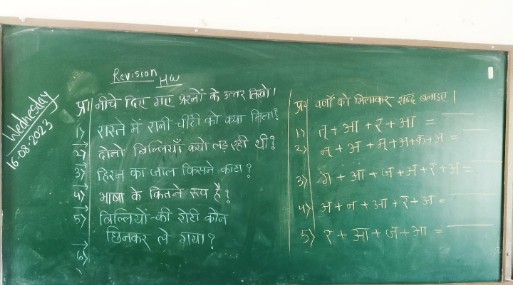 Wednesday
16-08-2023
Revision
HW
प्र। नीचे दिए गए प्रश्नों के उत्तर लिखो।
1) रास्ते में रानी चींटी को क्या मिला?
2) दोनों बिल्लियाँ क्यों लड़ रही थी?
3) हिरन का जाल किसने काटा?
4) भाषा के कितने रूप है?
5) बिल्लियों की रोटी कौन
छिनकर ले गया?
6)
प्र वर्णों को मिलाकर शब्द बनाइए।
1) त् + आ + र + आ =
2)
3) + आ + ज + अ + र + अ =
4) अ + न + आ + र + अ =
5) र + आ + ज + आ =